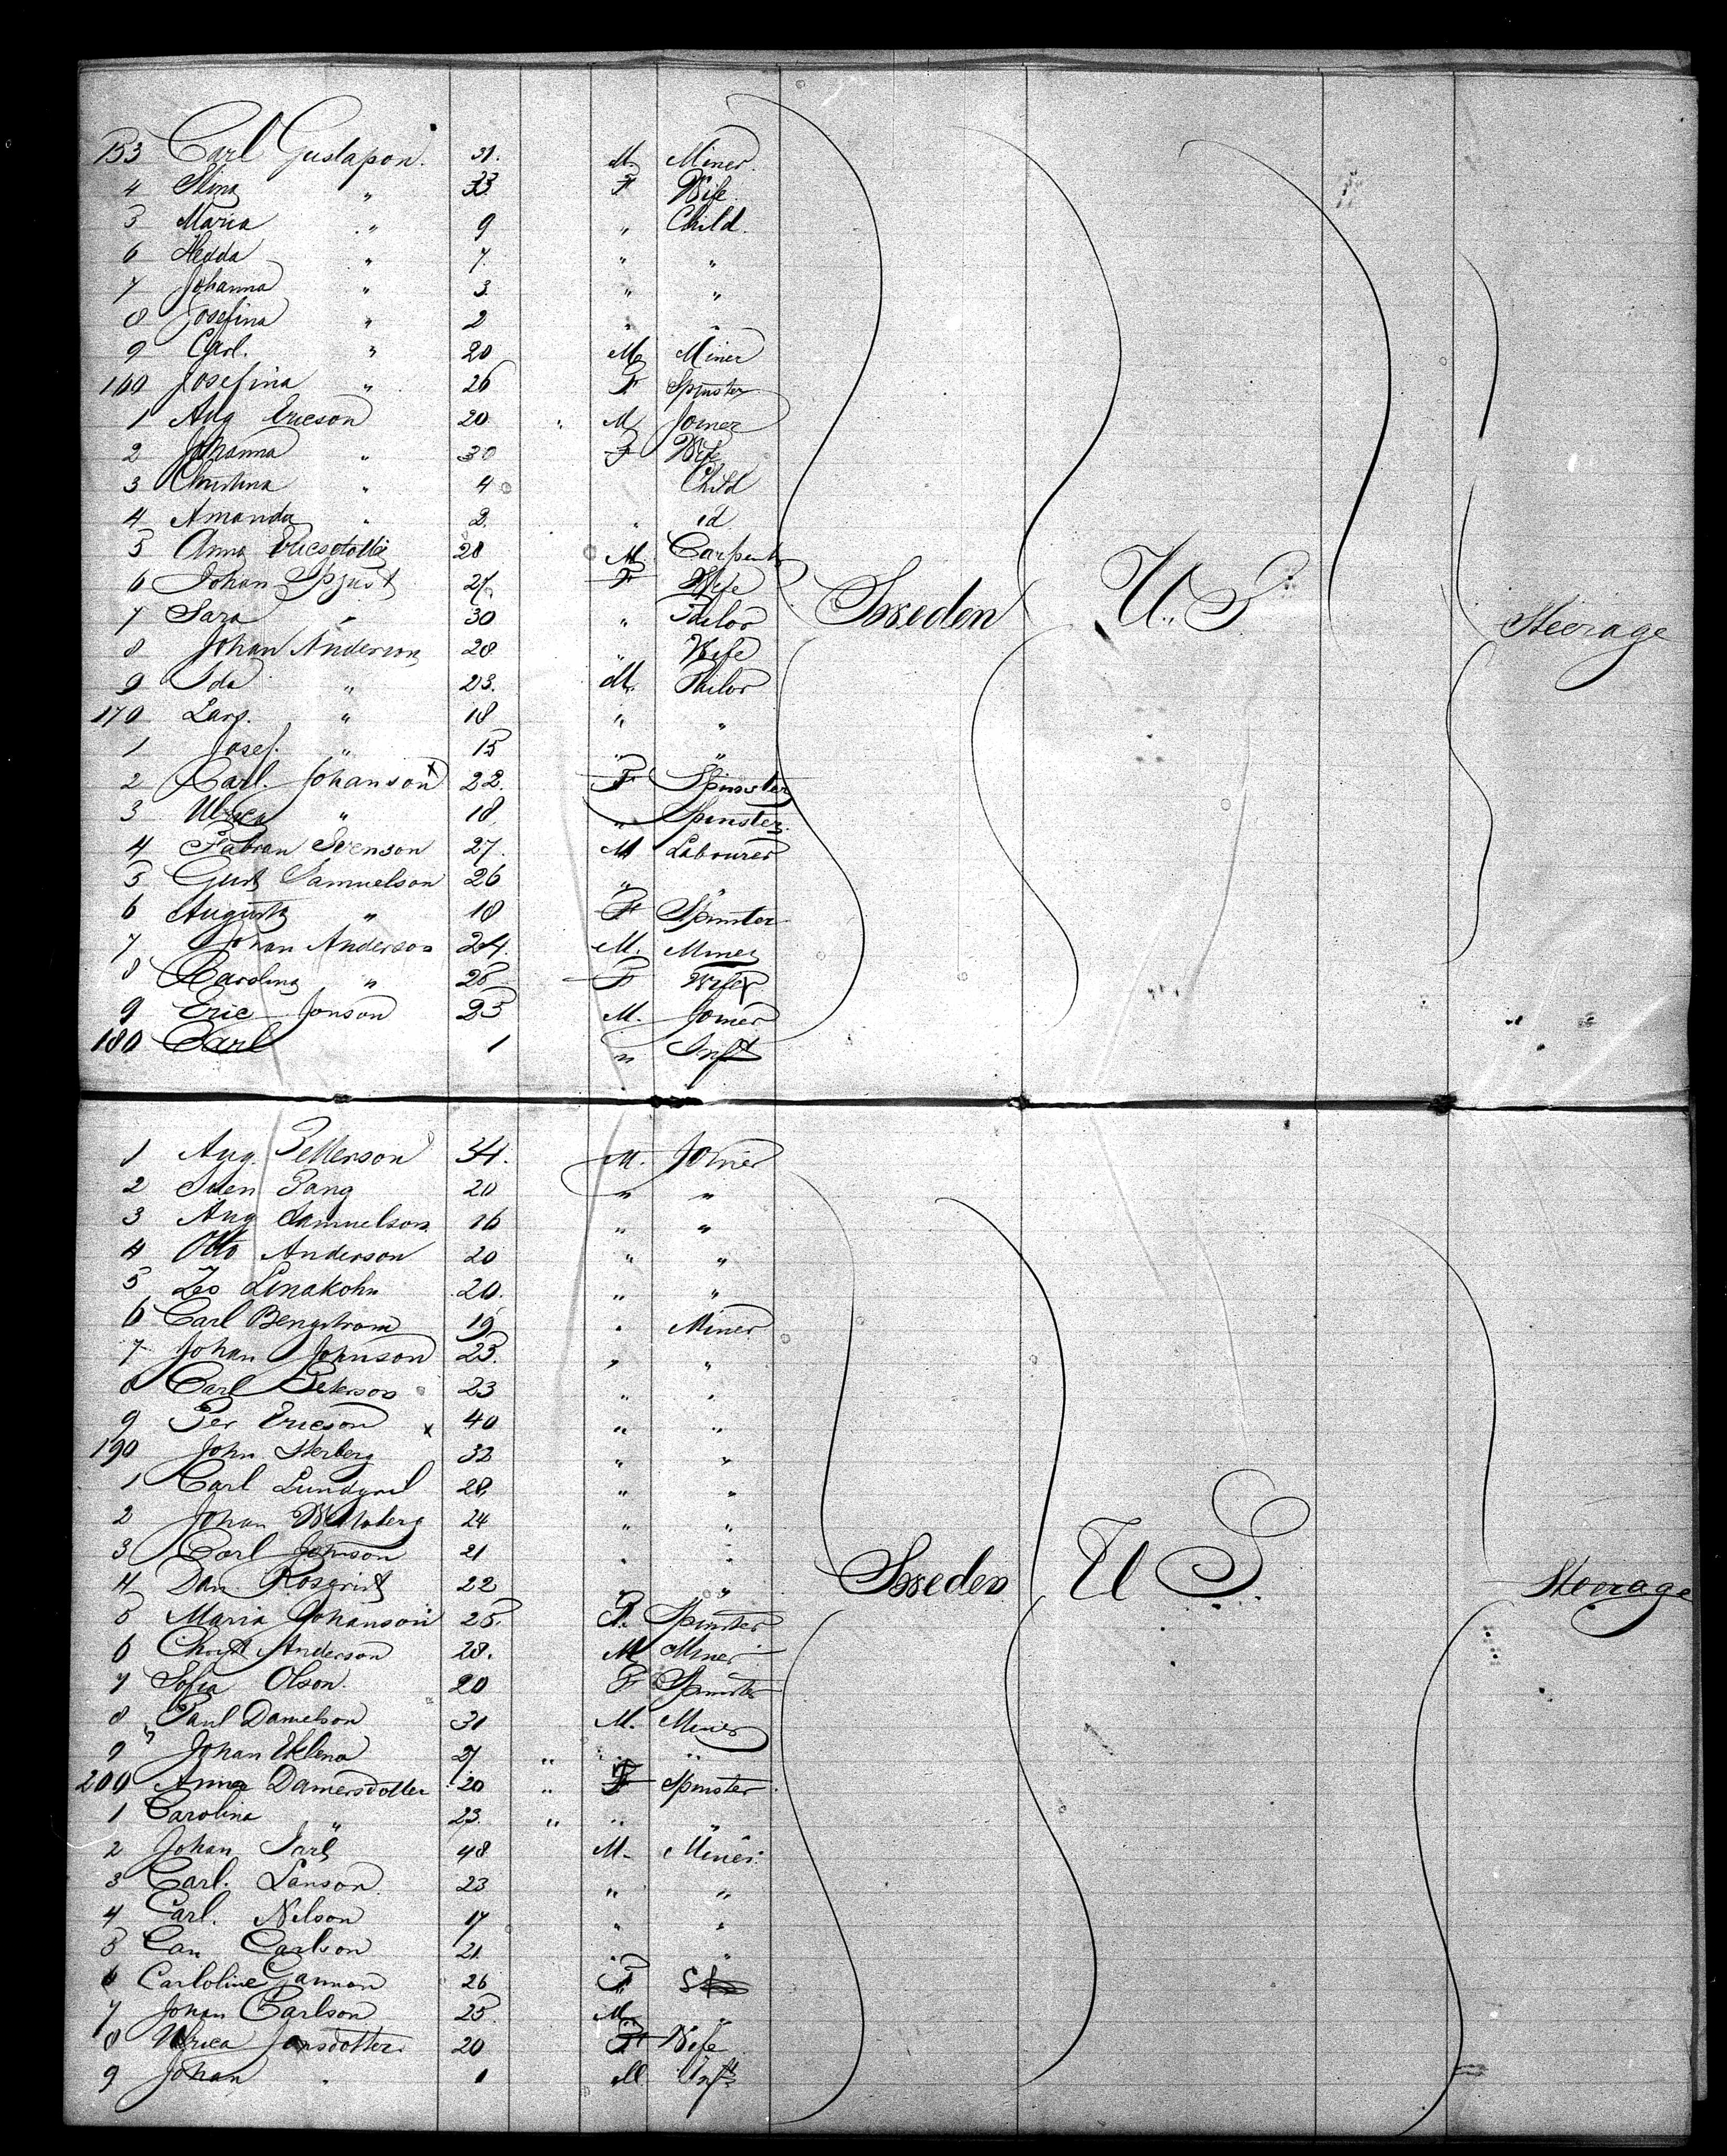 153 Carl Gustafson. 31. M. Miner.
4 Stina " 33 F Wife
5 Maria " 9 " Child.
6 Hedda " 7 " "
7 Johanna " 3 " "
8 Josefina " 2 " "
9 Carl. " 20 M Miner
160 Josefina " 26 F Spinster
1 Aug Ericson 20 M Joiner
2 Johanna " 30 F Wife
3 Christina " 4 Child
4 Amanda " 2 " id
5 Anna 28 M Carpent
6 Johan Spjust 27 F Wife
7 Sara " 30 " Tailor
Sweden U.S Steerage
8 Johan Anderson 28 " Wife
9 Ida " 23. M. Tailor
170 Lars. " 18 " "
1 Josef. " 15 " "
2 Carl. Johanson x 22. F Spinster
3 Ulrica " 18. " Spinster
4 Fabian Svenson 27. M Labourer
5 Gust Samuelson 26 " "
6 Augusta " 18 F Spinster
7 Johan Anderson 24. M. Miner
8 Carolina " 28 F Wife
9 Eric Jonson 25 M. Joiner
180 Carl 1 " Inft
1 Aug. Petterson 34. M. Joiner
2 Sven Pang 20 " "
3 Aug Samuelson 16 " "
4 Otto Anderson 20 " "
5 Leo Linakohn 20. " "
6 Carl Bengstrom 19 " Miner
7 Johan Johnson 25. " "
8 Carl Peterson 23 " "
9 Per Ericson x 40 " "
190 John Sterberg 32 " "
1 Carl 28 " "
2 Johan 24 " "
3 Carl Jonson 21 " "
Sweden U S Steerage
4 Dan. 22 " "
5 Maria Johanson 25. F. Spinster
6 Anderson 28. M Miner
7 Sofia Olson. 20 F Spinster
8 Paul Danielson 31 M. Miner
9 Johan Eklena 27 " " "
200 Anna Damersdotter 20 " F Spinster
1 Carolina " 23. " " "
2 Johan 48 M. Miner
3 Carl. Lanson 23 " "
4 Carl. Nelson 17 " "
5 Carlson 21 " "
6 Carloline Gannon 26 F
7 Johan Carlson 25 M "
8 Ulrica Jonsdotter 20 F Wife
9 Johan " 1 M Inft